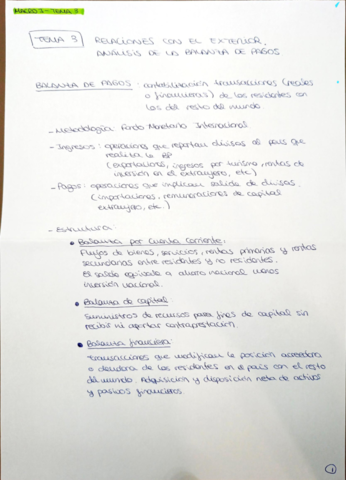 MACRO 2 - TEMA 3
TEMA 3 RELACIONES CON EL EXTERIOR,
ANÁLISIS DE LA BALANZA DE PAGOS
BALANZA DE PAGOS: contabilización transacciones (reales
o financieras) de los residentes con
los del resto del mundo
- Metodología Fondo Monetario Internacional
- Ingresos: operaciones que reportan divisas al país que
realiza la BP
(exportaciones, ingresos por turismo, rentas de
inversión en el extranjero, etc)
- Pagos: operaciones que implican salida de divisas
(importaciones, remuneraciones de capital
extranjero, etc.)
- Estructura:
• Balanza por Cuenta Corriente:
Flujos de bienes, servicios, rentas primarias y rentas
secundarias entre residentes y no residentes.
El saldo equivale a ahorro nacional menos
inversión nacional.
• Balanza de capital:
Suministros de recursos para fines de capital sin
recibir ni aportar contraprestación.
• Balanza financiera:
Transacciones que modifican la posición acreedora
o deudora de los residentes en el país con el resto
del mundo. Adquisición y disposición neta de activos
y pasivos financieros.
1